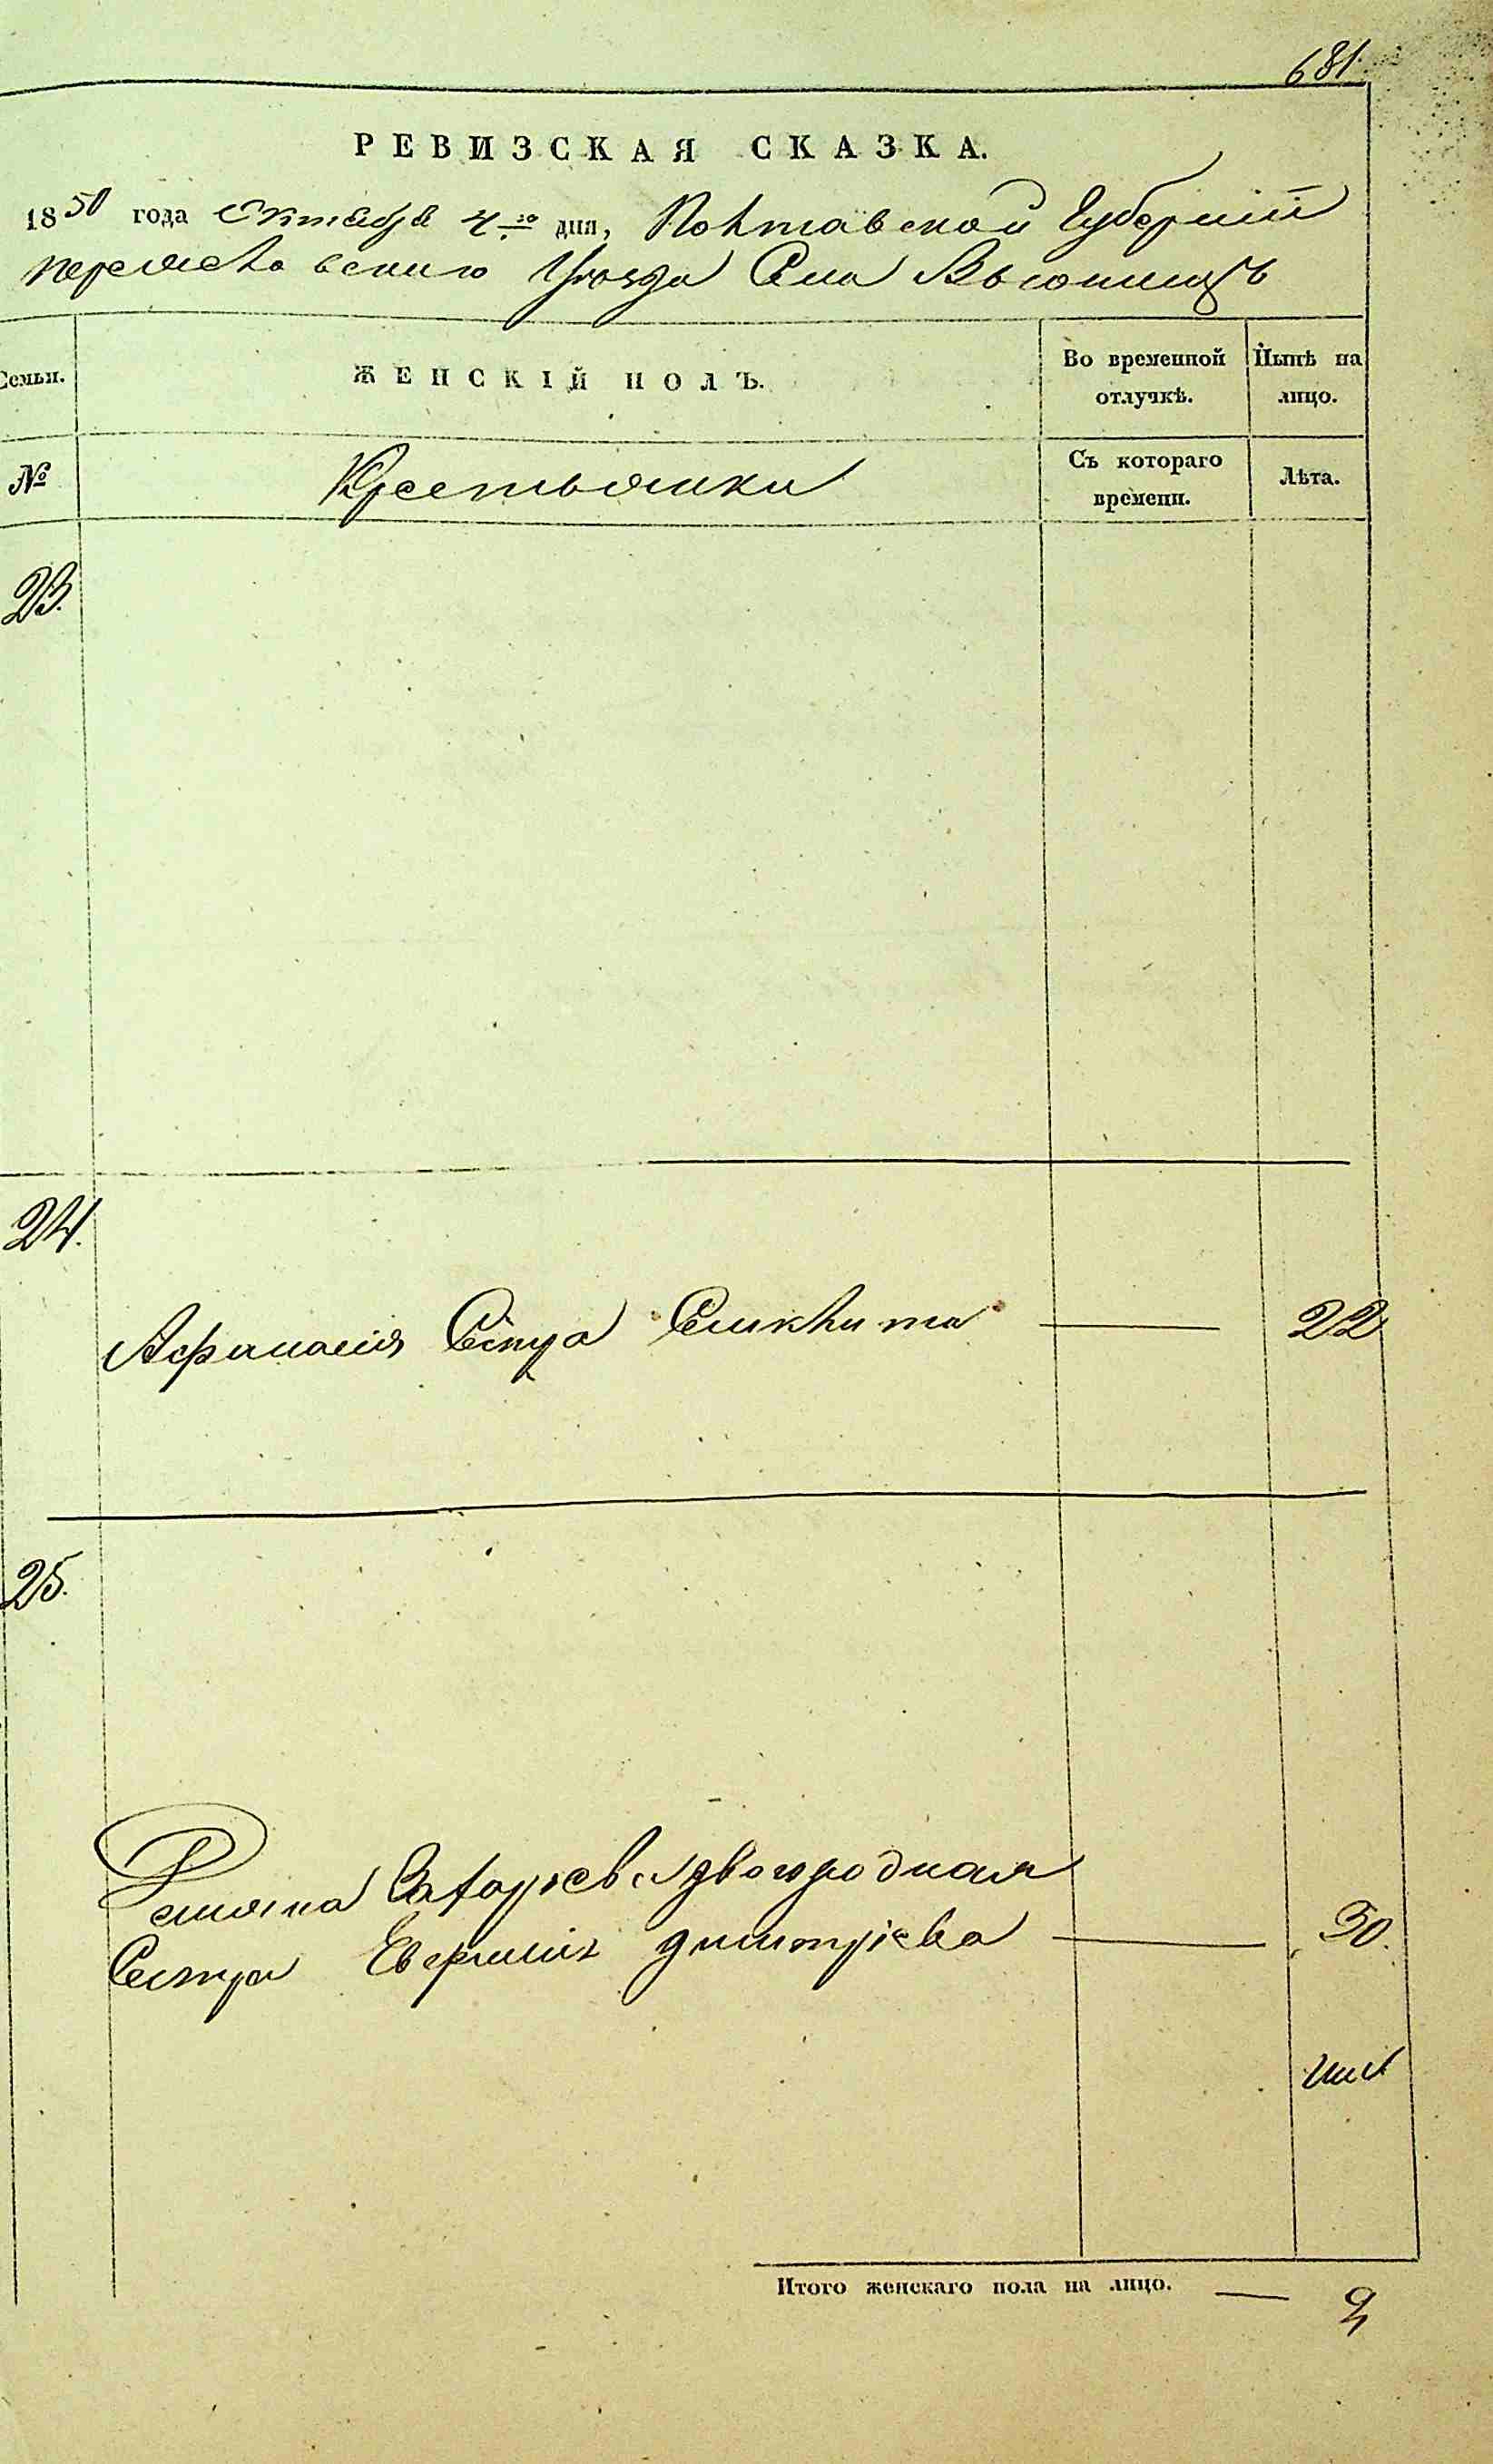 681.
РЕВИЗСКАЯ СКАЗКА.
1850 года Октября 4го дня, Полтавской Губерніи
Переяславскаго Уѣзда Села
Семьи.
ЖЕНСКІЙ ПОЛЪ.
Во временной отлучкѣ.
Нынѣ на лицо.
№
Крестьянки
Съ котораго времени.
Лѣта.
23.
24.
Афанасія Сестра — 22
25.
Захарьева двоюродная
Сестра Димитріева — 30.
Итого женскаго пола на лицо. — 2